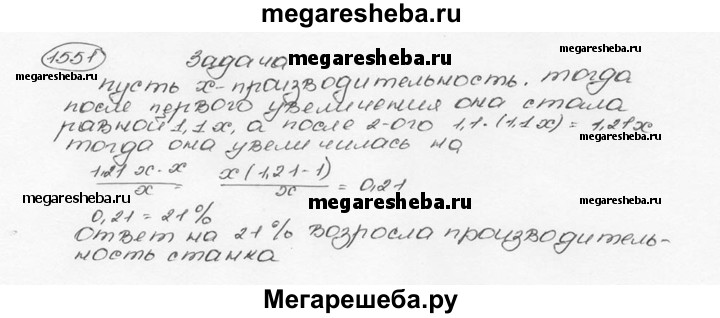 megaresheba.ru
1551
Задача
megaresheba.ru
megaresheba.ru
megaresheba.ru
пусть x - производительность. тогда
после первого увеличения она стала
равной 1,1x, а после 2-ого 1,1·(1,1x) = 1,21x
тогда она увеличилась на
1,21x - x / x = x(1,21-1) / x = 0,21
megaresheba.ru
megaresheba.ru
megaresheba.ru
0,21 = 21%
ответ на 21% возросла производитель-
ность станка
Мегарешеба.ру